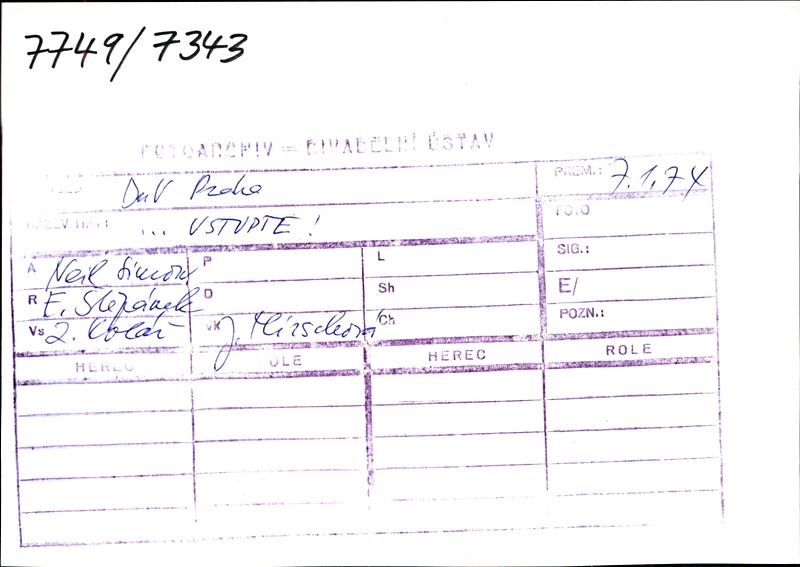 7749/7343
FOTOARCHIV = DIVADELNÍ ÚSTAV
DnV Praha
PREM.: 7.1.74
NÁZEV INSC. ... VSTUPTE!
FOTO
A Neil Simon
P
L
SIG.:
R E. Štěpánek
D
Sh
E/
Vs Z. Kolář
Vk J. Hirschová
Ch
POZN.:
HEREC
ROLE
HEREC
ROLE